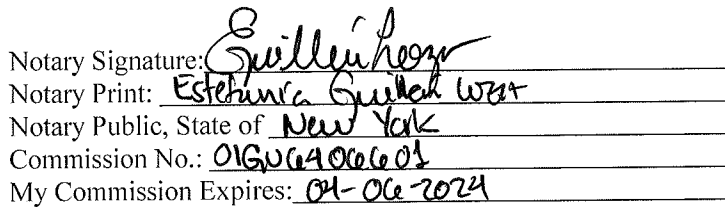 Notary Signature:
Notary Print: Estefania Guillen
Notary Public, State of New York
Commission No.: 01GU6406601
My Commission Expires: 04-06-2024